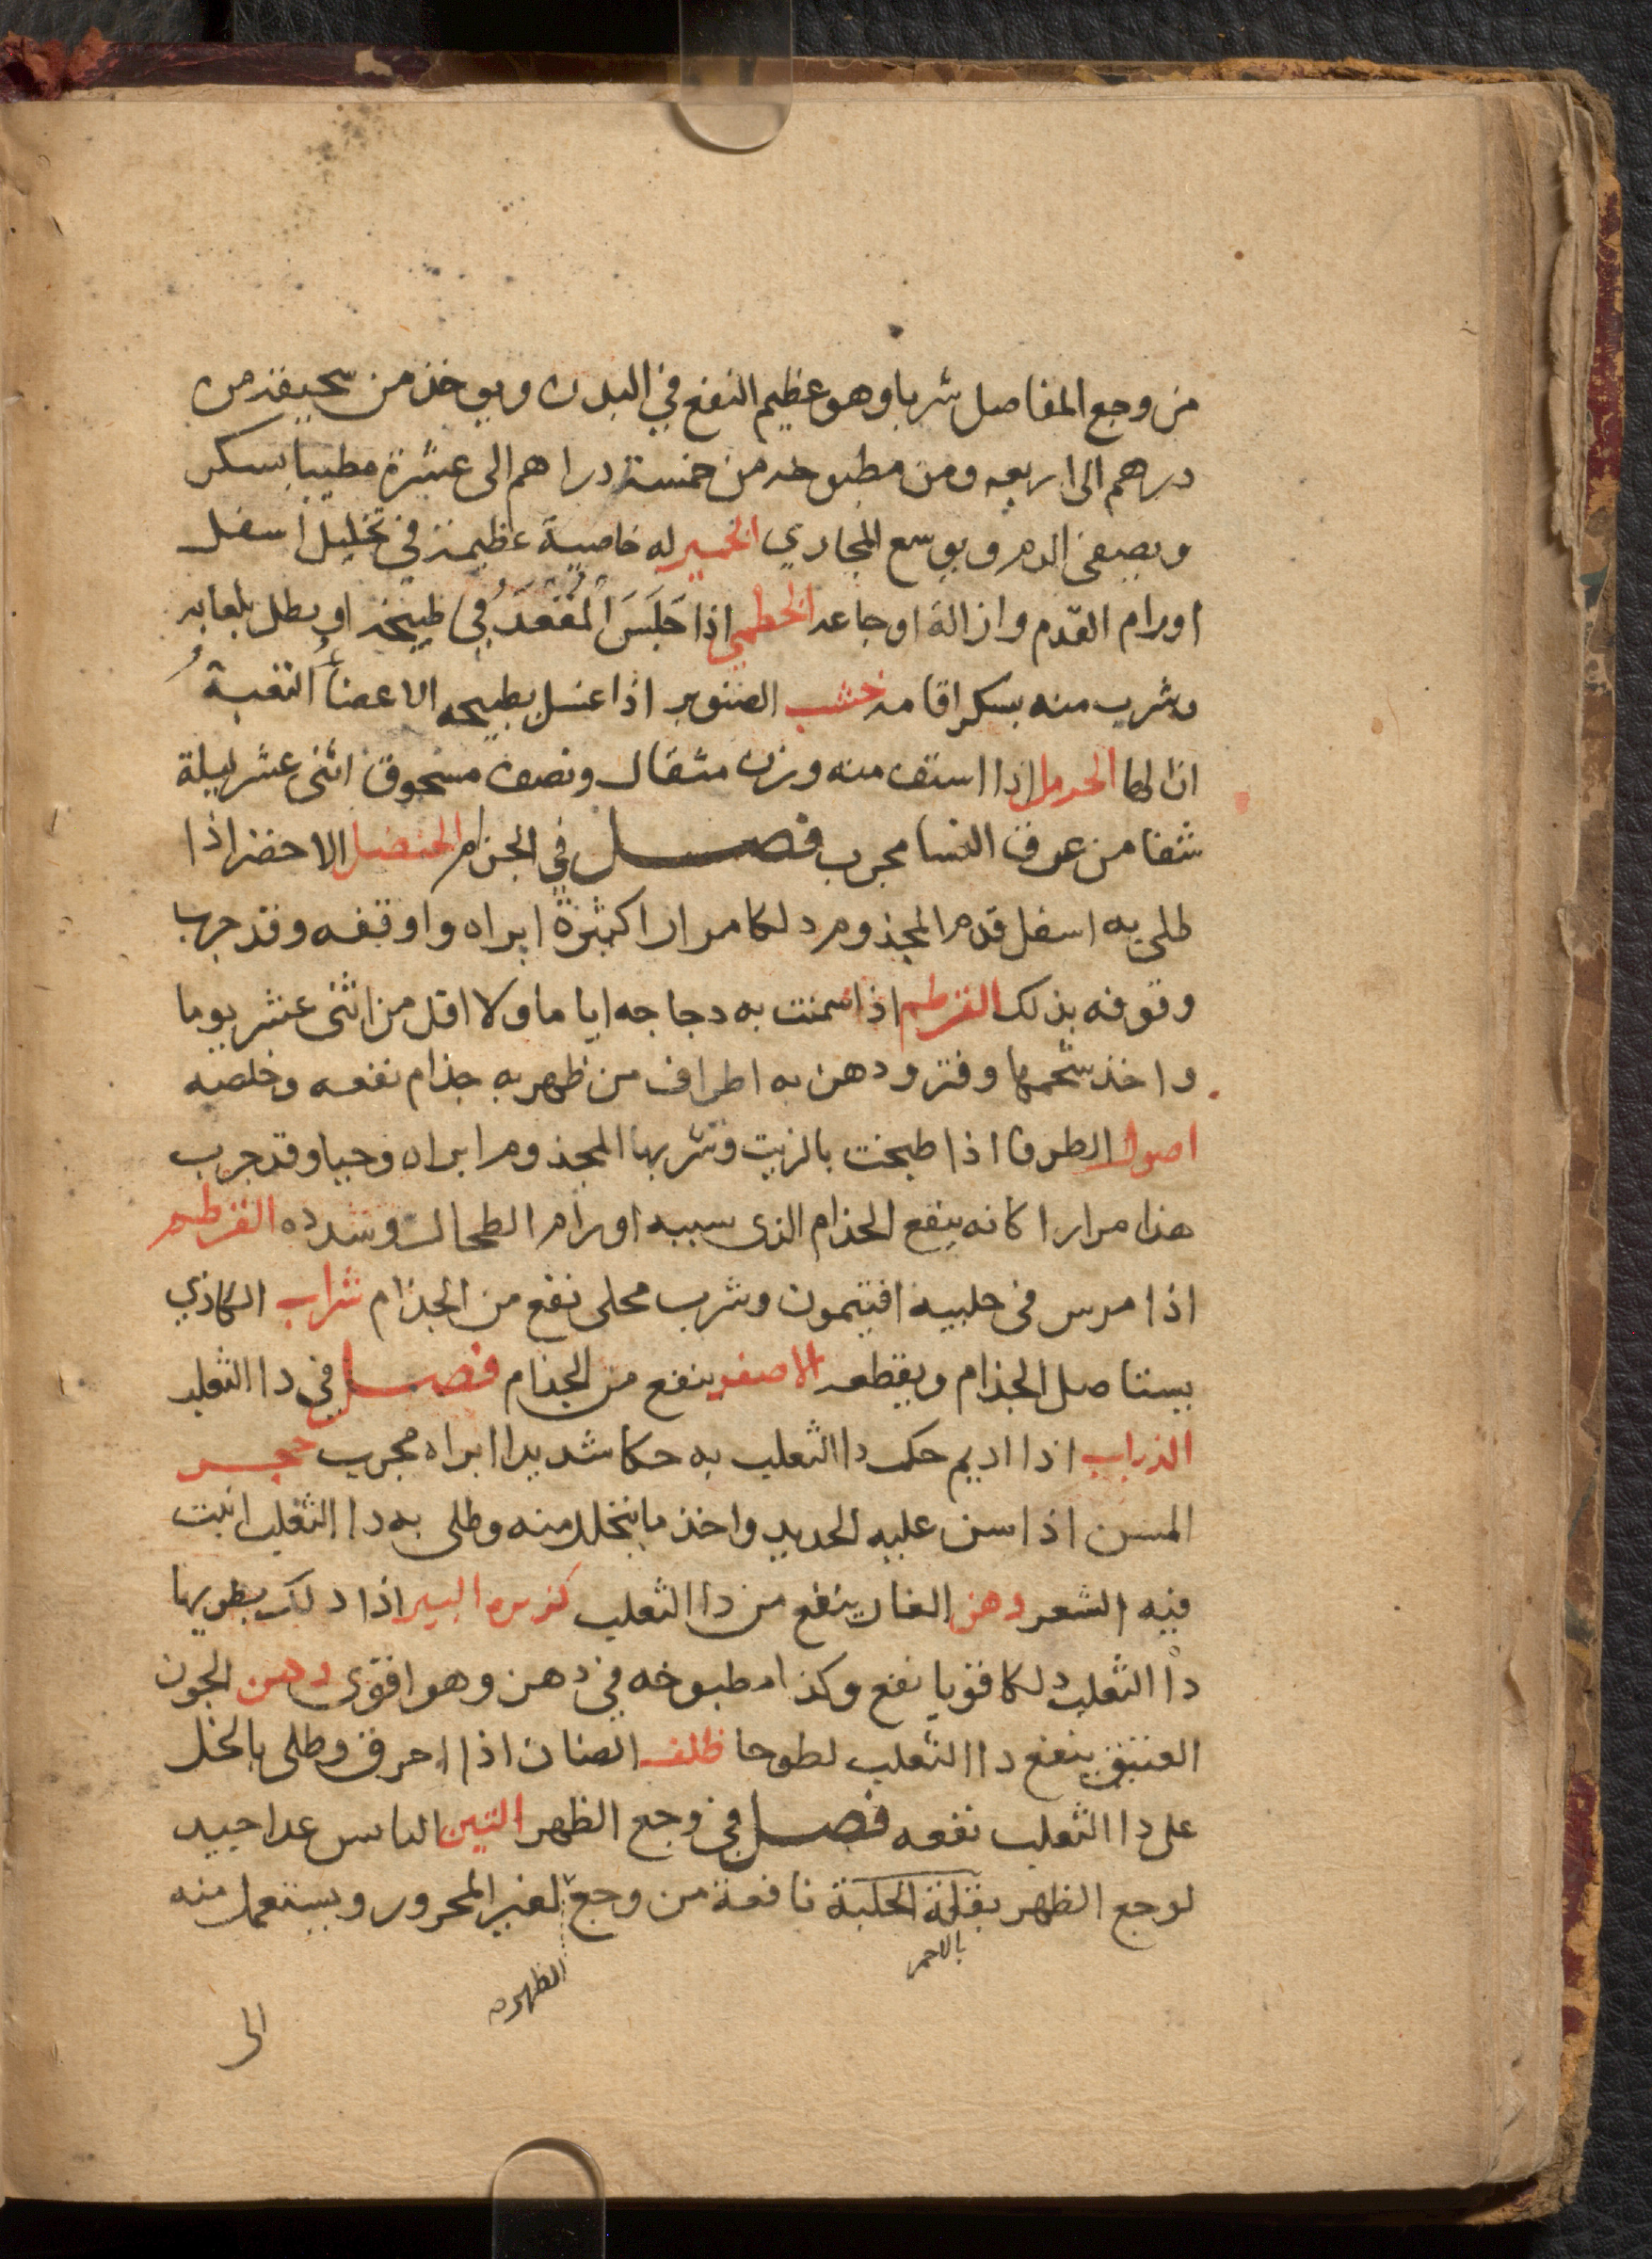 من وجع المفاصل شربا وهو عظيم النفع في البدن ويوخذ من سحيقه من
درهم الى اربعه ومن مطبوخه من خمسة دراهم الى عشرة مطيبا بسكر
ويصفى الدم ويوسع المجاري الخمير له خاصية عظيمة في تحليل اسفل
اورام القدم وازالة اوجاعه الخطمي اذا جَلَسَ المُقعَدُ في طبيخه او يطل بلعابه
وشرب منه بسكر اقامه خشب الصنوبر اذا غسل بطبيخه الاعضاء التعبة
ازالها الحرمل اذا استف منه وزن مثقال ونصف مسحوق اثنى عشر ليلة
شفا من عرق النسا مجرب فصل في الجذام الحنضل الاخضر اذا
طلي به اسفل قدم المجذوم دلكا مرارا كثيرة ابراه واوقفه وقد جرب
وقوفه بذلك القرطم اذا سمنت به دجاجه اياما ولا اقل من اثنى عشر يوما
واخذ شحمها وفتر ودهن به اطراف من ظهر به جذام نفعه وخلصه
اصول الطرفا اذا طبخت بالزيت وشربها المجذوم ابراه وحيا وقد جرب
هذا مرارا كانه ينفع الجذام الذى سببه اورام الطحال وشدده القرطم
اذا مرس في حليبه افتيمون وشرب محلى نفع من الجذام شراب الكاذي
يستاصل الجذام ويقطعه الاصفر ينفع من الجذام فصل في دا الثعلب
الذباب اذا اديم حك دا الثعلب به حكا شديدا ابراه مجرب حجر
المسن اذا سن عليه الحديد واخذ ما ينحل منه وطلى به دا الثعلب انبت
فيه الشعر دهن الغار ينفع من دا الثعلب كزبره البير اذا دلك بطريها
دا الثعلب دلكا قويا نفع وكذا مطبوخه في دهن وهو اقوى دهن الجوز
العتيق ينفع دا الثعلب لطوخا ظلف الضان اذا احرق وطلى بالخل
على دا الثعلب نفعه فصل في وجع الظهر التين اليابس غدا جيد
لوجع الظهر بقلة الحلبة نافعة من وجع لغير المحرور ويستعمل منه
بالاحمر
الظهر
الى